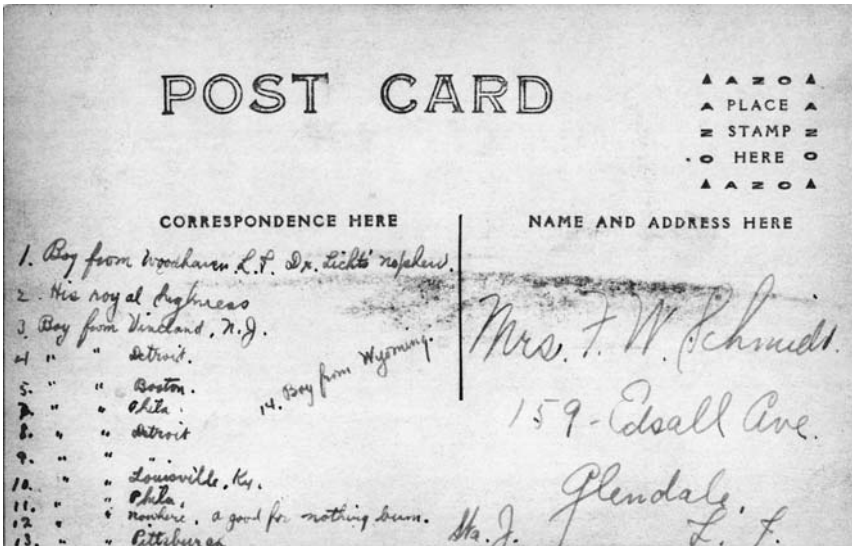 POST CARD
▲ A Z O ▲
A PLACE A
Z STAMP Z
O HERE O
▲ A Z O ▲
CORRESPONDENCE HERE
NAME AND ADDRESS HERE
1. Boy from Woodhaven. L.I. Dr. Lichts' nephew.
2. His royal highness
3. Boy from Vineland, N.J.
4 " " Detroit.
5. " " Boston.
7. " " Phila.
8. " " Detroit
9. " " ".
10. " " Louisville, Ky.
11. " " Phila.
12 " " nowhere, a good for nothing bum.
13. " " Pittsburgh
14. Boy from Wyoming.
Mrs. F. W. Schmidt.
159 - Edsall Ave.
Glendale,
Sta. J. L. I.